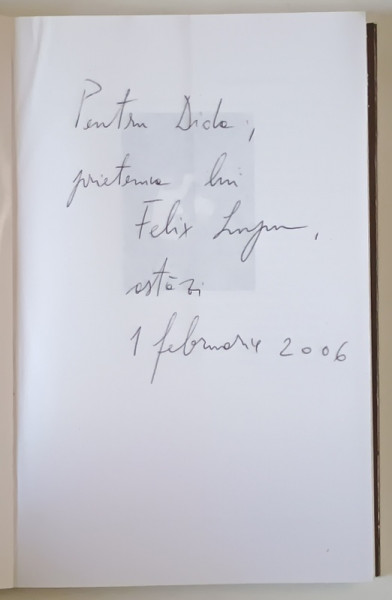 Pentru Dida,
prietenia lui
Felix Lupu,
astăzi
1 februarie 2006